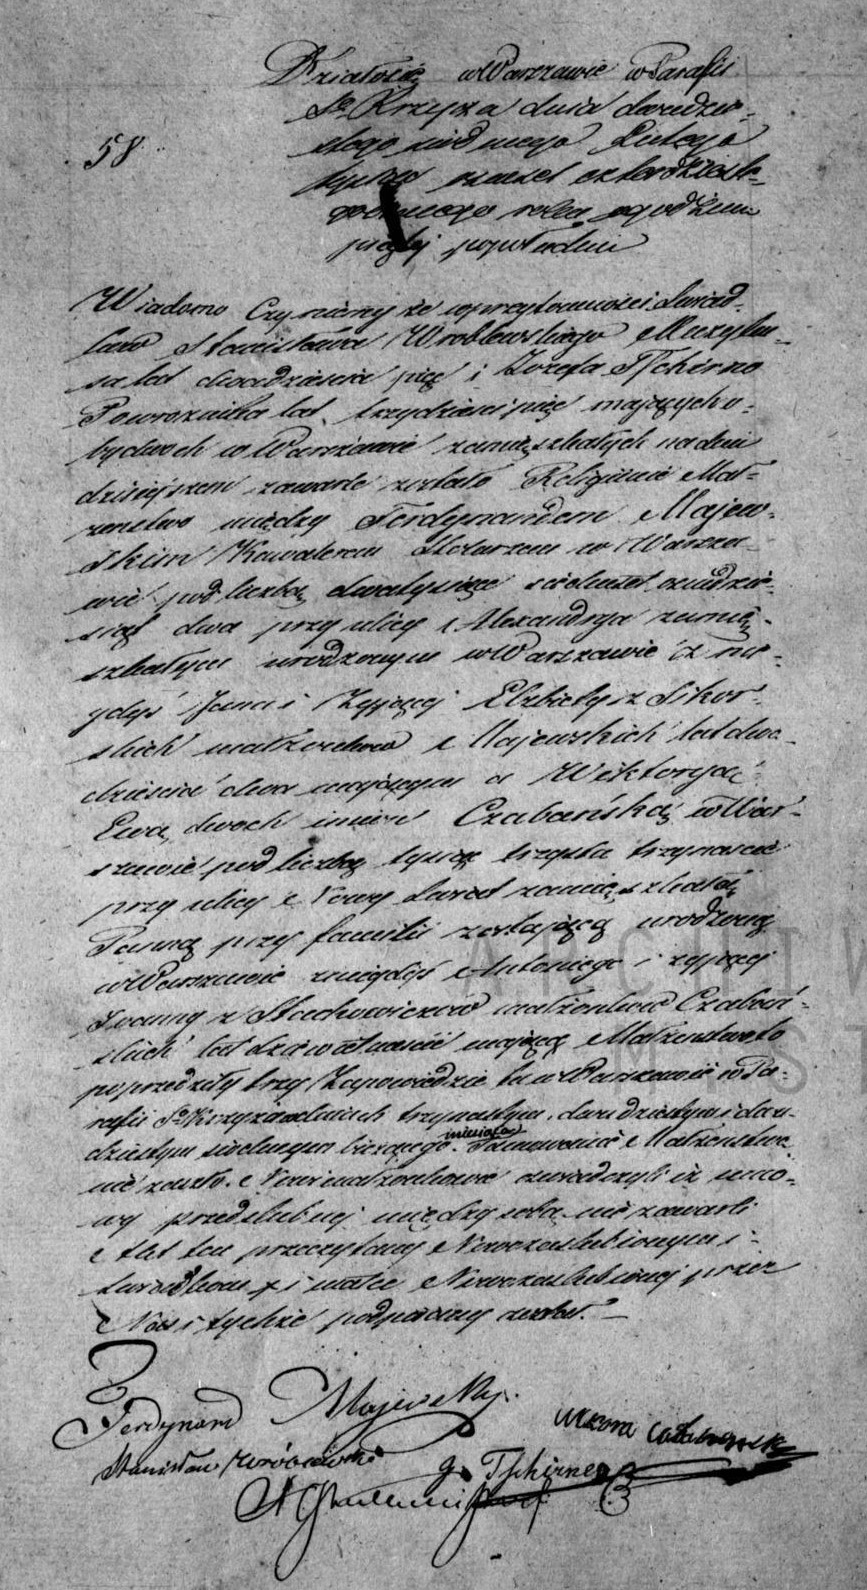 58
Działo się w Warszawie w Parafii
Sgo Krzyża dnia dwudzie-
stego siódmego Lutego
tysiąc osiemset czterdziesto-
roku o godzinie
piątej popołudniu
Wiadomo Czyniemy że w przytomności Świad-
ków Stanisława Wróblewskiego Muzyku-
sa lat dwadzieścia pięć i Józefa Tschirne
Powroznika lat trzydzieści pięć mających o-
bydwoch w Warszawie zamieszkałych na dniu
dzisiejszem zawarte zostało Religijne Mał-
żeństwo między Ferdynandem Majew-
skim Kawalerem Stolarzem w Warsza-
wie pod liczbą dwa tysiące siedmset ośmdzie-
siąt dwa przy ulicy Alexandrya zamie-
szkałym urodzonym w Warszawie z nie-
gdyś Jana i żyjącej Elżbiety z Sikor-
skich małżonków Majewskich lat dwa-
dzieścia dwa mającym a Wiktoryą
Ewą dwoch imion Czabańską w War-
szawie pod liczbą tysiąc trzysta trzynaście
przy ulicy Nowy Świat zamieszkałą
Panną przy familii zostającą urodzoną
w Warszawie z niegdyś Antoniego i żyjącej
Joanny z Stachowiczów małżonków Czabań-
skich lat dziewiętnaście mającą Małżeństwo to
poprzedziły trzy Zapowiedzie tu w Warszawie w Pa-
rafii Sgo Krzyża w dniach trzynastym, dwudziestym i dwu-
dziestym siodmym bieżącego miesiąca Tamowanie Małżeństwa
nie zaszło. Nowi małżonkowie oświadczyli iż umo-
wy przedślubnej między sobą nie zawarli
Akt ten przeczytany Nowozaślubionym i
Świadkom i matce Nowozaślubionej przez
Nas i tychże podpisany został.
Ferdynand Majewsky
Stanisław Wróblewski
J. Tschirne
ARCHIW
M ST